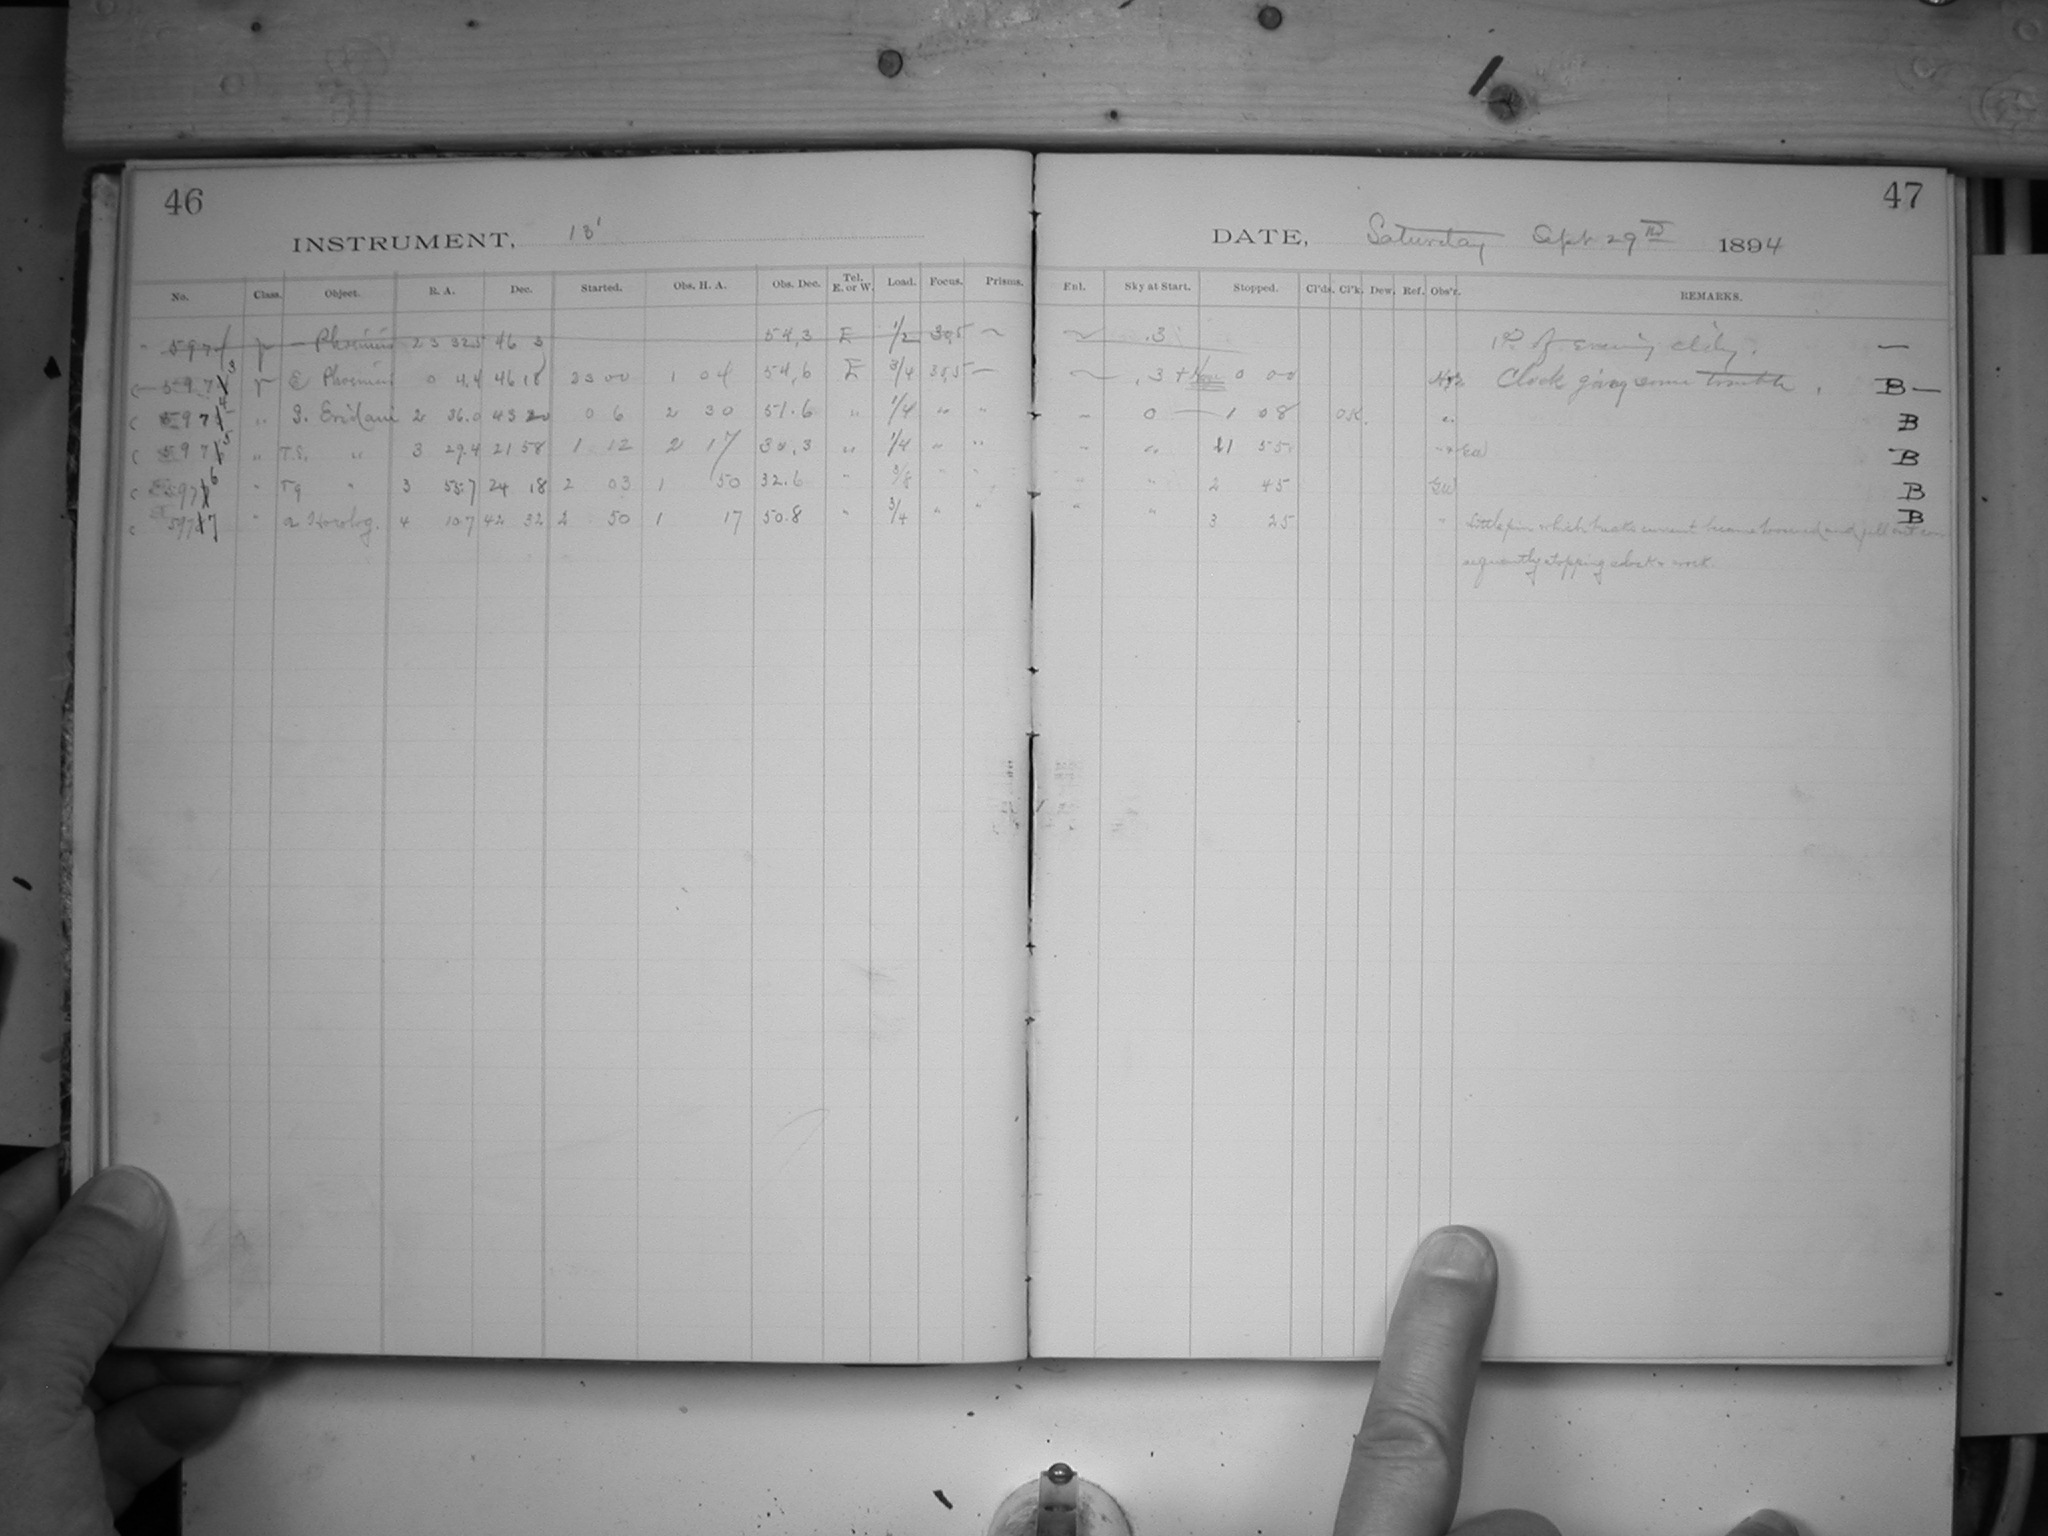 46
INSTRUMENT, 13'
No. Class. Object. R. A. Dec. Started. Obs. H. A. Obs. Dec. Tel. E. or W. Load. Focus. Prisms.
Phoenicis 23 32.5 46 3 54.3 E 1/2 30.5 —
r E Phoenicis 0 4.4 46 18 23 00 1 04 54.6 E 3/4 30.5 —
" S. Eridani 2 36.0 43 20 0 6 2 30 51.6 " 1/4 " "
" T.S. " 3 29.4 21 58 1 12 2 17 30.3 " 1/4 " "
" T9 " 3 55.7 24 18 2 03 1 50 32.6 " 3/8 " "
" a Horolog. 4 10.7 42 32 2 50 1 17 50.8 " 3/4 " "
47
DATE, Saturday Sept 29 1894
Enl. Sky at Start. Stopped. Cl'ds. Cl'k. Dew. Ref. Obs'r. REMARKS.
.3 of evening cldy. —
.3 + 0 00 Clock giving some trouble. B —
" 0 1 08 OK. " B
" " 1 55 B
" " 2 45 B
" " 3 25 " Little pin which breaks current became loosened and fell out con B
sequently stopping clock work.